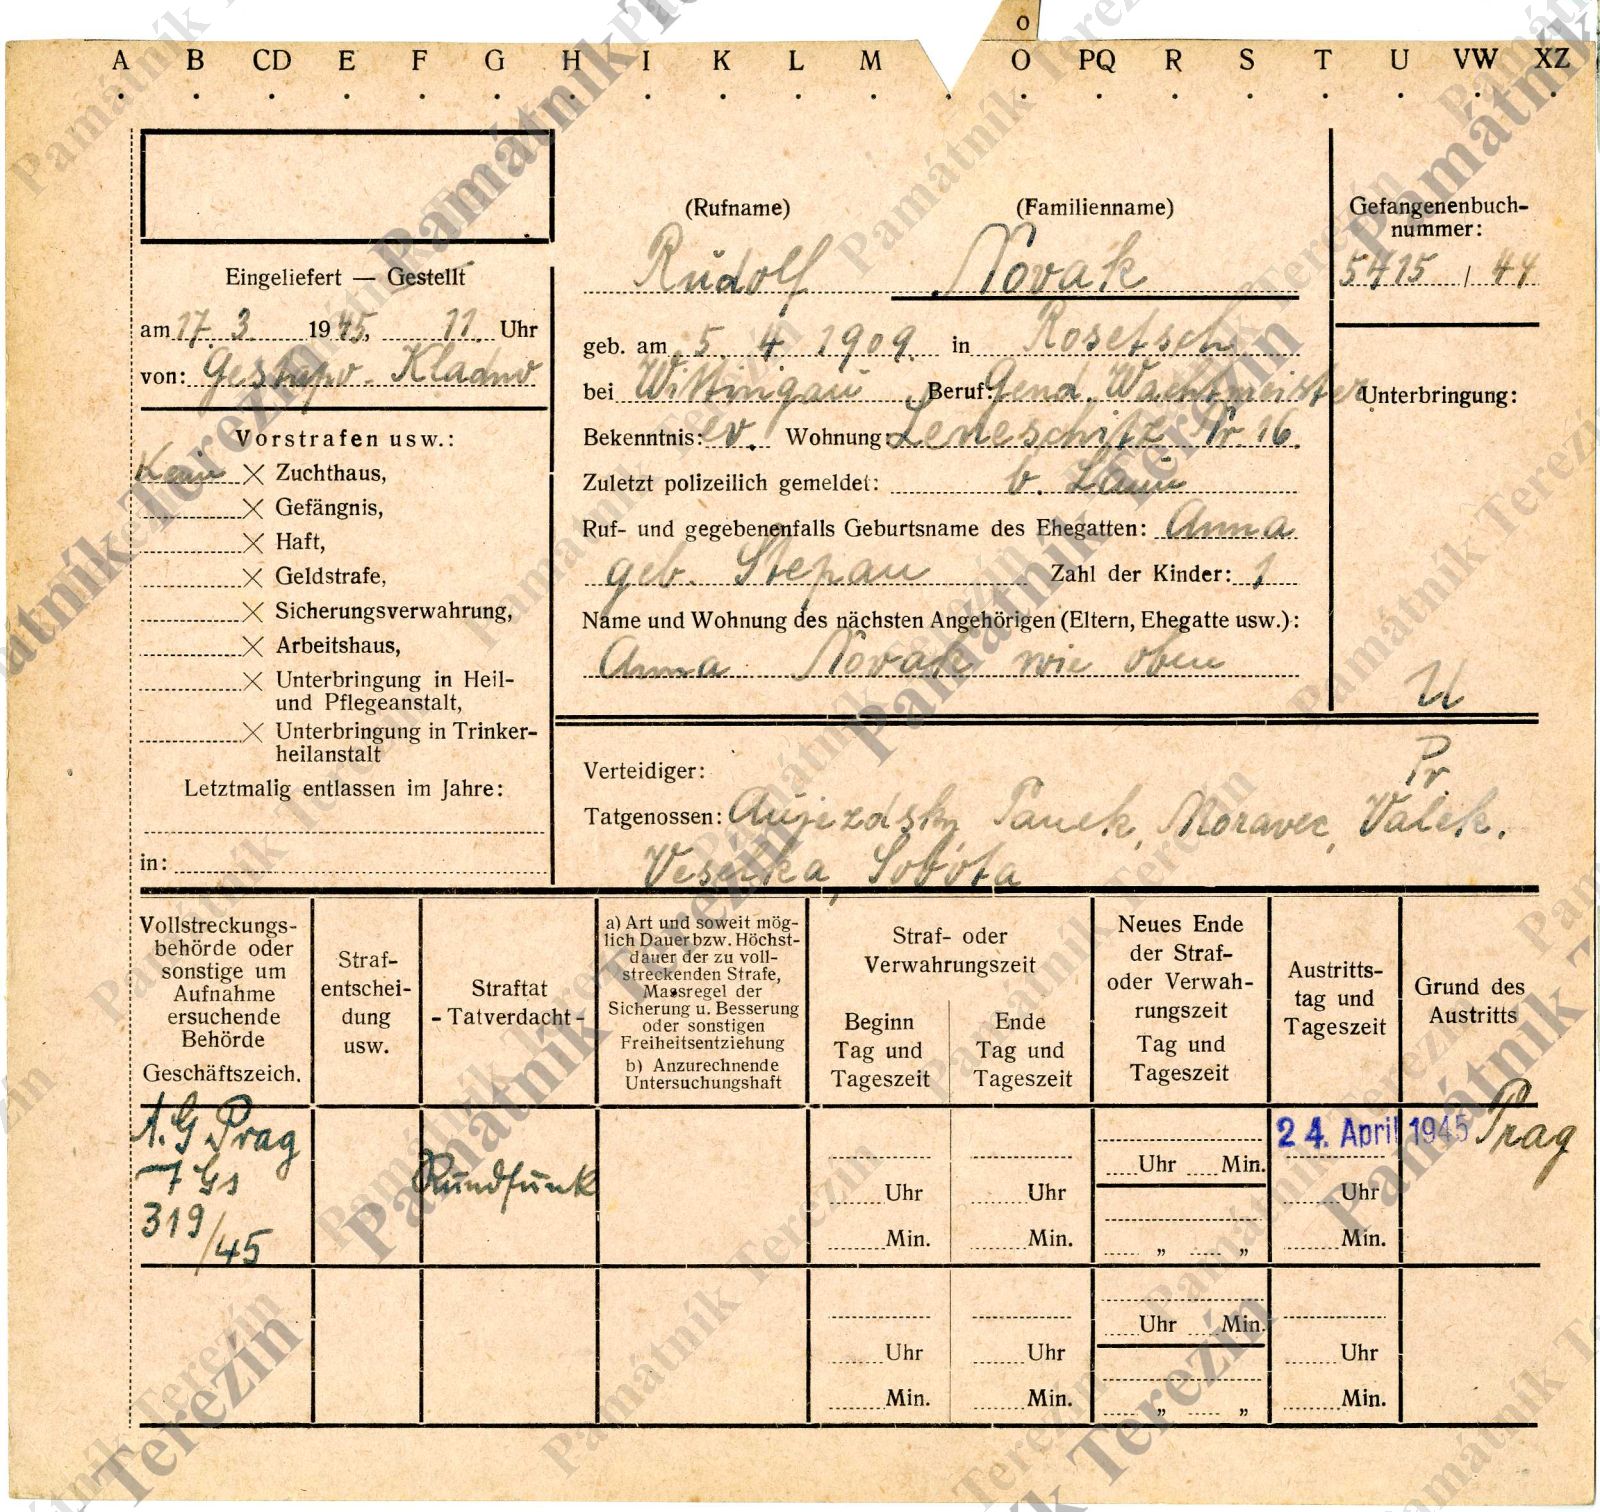 o
A B CD E F G H I K L M O PQ R S T U VW XZ
(Rufname) (Familienname)
Rudolf Novak
Gefangenenbuch-
nummer:
5415 / 44
Eingeliefert — Gestellt
am 17. 3. 1945, 11 Uhr
von: Gestapo - Kladno
geb. am 5. 4. 1909. in Rosetsch
bei Wittingau Beruf: Gend. Wachtmeister
Bekenntnis: ev. Wohnung: Leneschitz Nr. 16.
Zuletzt polizeilich gemeldet: b. Laun
Ruf- und gegebenenfalls Geburtsname des Ehegatten: Anna
geb. Stepan Zahl der Kinder: 1
Name und Wohnung des nächsten Angehörigen (Eltern, Ehegatte usw.):
Anna Novak wie oben
Unterbringung:
U
Vorstrafen usw.:
Keine × Zuchthaus,
× Gefängnis,
× Haft,
× Geldstrafe,
× Sicherungsverwahrung,
× Arbeitshaus,
× Unterbringung in Heil-
und Pflegeanstalt,
× Unterbringung in Trinker-
heilanstalt
Letztmalig entlassen im Jahre:
in:
Verteidiger:
Pr
Tatgenossen: Aujezdsky Panek, Moravec, Valek,
Veserka, Sobota
Vollstreckungs-
behörde oder
sonstige um
Aufnahme
ersuchende
Behörde
Geschäftszeich.
Straf-
entschei-
dung
usw.
Straftat
- Tatverdacht -
a) Art und soweit mög-
lich Dauer bzw. Höchst-
dauer der zu voll-
streckenden Strafe,
Massregel der
Sicherung u. Besserung
oder sonstigen
Freiheitsentziehung
b) Anzurechnende
Untersuchungshaft
Straf- oder
Verwahrungszeit
Beginn
Tag und
Tageszeit
Ende
Tag und
Tageszeit
Neues Ende
der Straf-
oder Verwah-
rungszeit
Tag und
Tageszeit
Austritts-
tag und
Tageszeit
Grund des
Austritts
A.G Prag
7 Gs
319/45
Rundfunk
24. April 1945 Prag
Uhr Min.
Uhr Uhr Uhr
Min. Min. „ „ Min.
Uhr Min.
Uhr Uhr Uhr
Min. Min. „ „ Min.
Památník Terezín